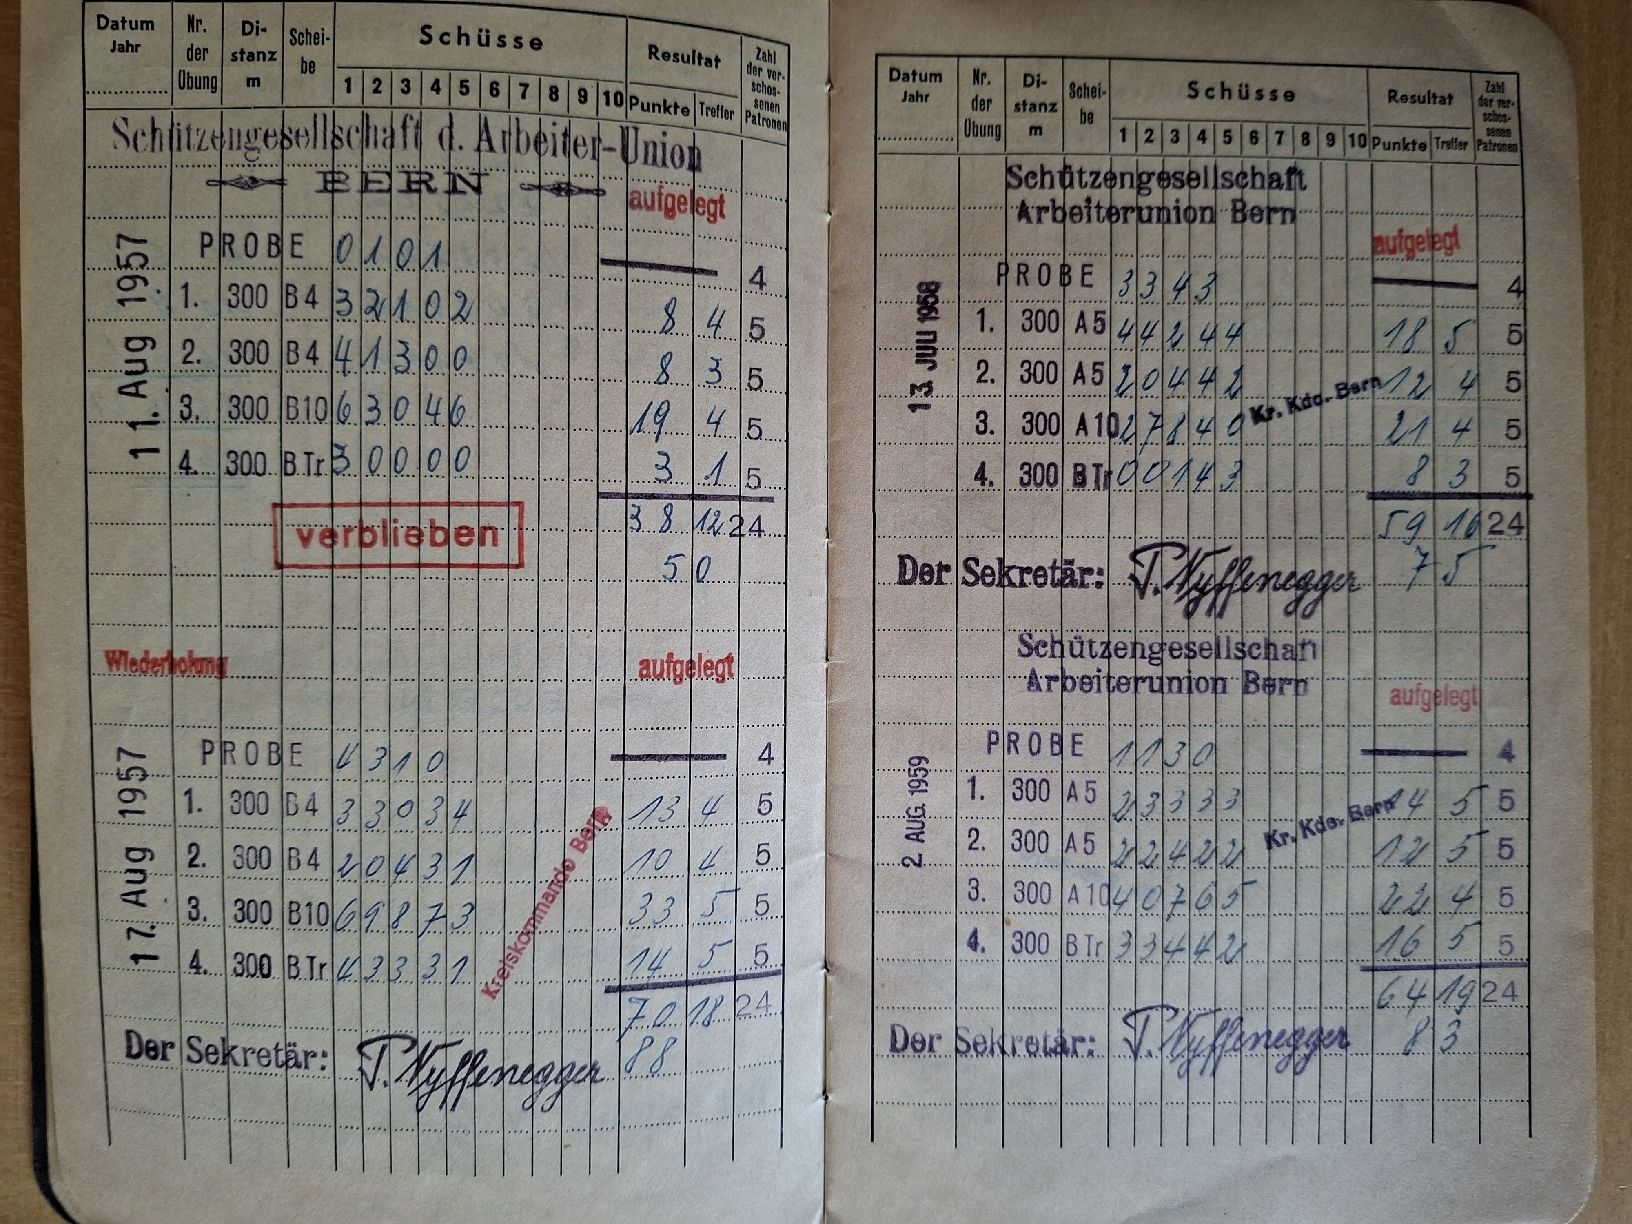 Datum Jahr Nr. der Übung Di-stanz m Schei-be Schüsse Resultat Zahl der ver-schos-senen Patronen
1 2 3 4 5 6 7 8 9 10 Punkte Treffer
Schützengesellschaft d. Arbeiter-Union
BERN
aufgelegt
11. Aug 1957
PROBE 0 1 0 1 4
1. 300 B4 3 2 1 0 2 8 4 5
2. 300 B4 4 1 3 0 0 8 3 5
3. 300 B10 6 3 0 4 6 19 4 5
4. 300 B.Tr 3 0 0 0 0 3 1 5
verblieben 38 12 24
50
Wiederholung aufgelegt
17. Aug 1957
PROBE 4 3 1 0 4
1. 300 B4 3 3 0 3 4 13 4 5
2. 300 B4 2 0 4 3 1 10 4 5
3. 300 B10 6 9 8 7 3 33 5 5
4. 300 B.Tr 4 3 3 3 1 14 5 5
Kreiskommando Bern
70 18 24
Der Sekretär: P. Nyffenegger 88
Datum Jahr Nr. der Übung Di-stanz m Schei-be Schüsse Resultat Zahl der ver-schos-senen Patronen
1 2 3 4 5 6 7 8 9 10 Punkte Treffer
Schützengesellschaft
Arbeiterunion Bern
aufgelegt
13. JULI 1958
PROBE 3 3 4 3 4
1. 300 A5 4 4 2 4 4 18 5 5
2. 300 A5 2 0 4 4 2 12 4 5
Kr. Kdo. Bern
3. 300 A10 2 7 8 4 0 21 4 5
4. 300 B Tr 0 0 1 4 3 8 3 5
59 16 24
Der Sekretär: P. Nyffenegger 75
Schützengesellschaft
Arbeiterunion Bern
aufgelegt
2 AUG. 1959
PROBE 1 1 3 0 4
1. 300 A5 2 3 3 3 3 14 5 5
Kr. Kdo. Bern
2. 300 A5 2 2 4 2 2 12 5 5
3. 300 A10 4 0 7 6 5 22 4 5
4. 300 B Tr 3 3 4 4 2 16 5 5
64 19 24
Der Sekretär: P. Nyffenegger 83